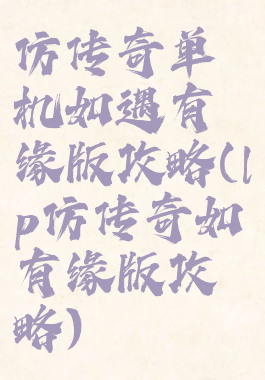 仿传奇单
机如遇有
缘版攻略(l
p仿传奇如
有缘版攻
略)